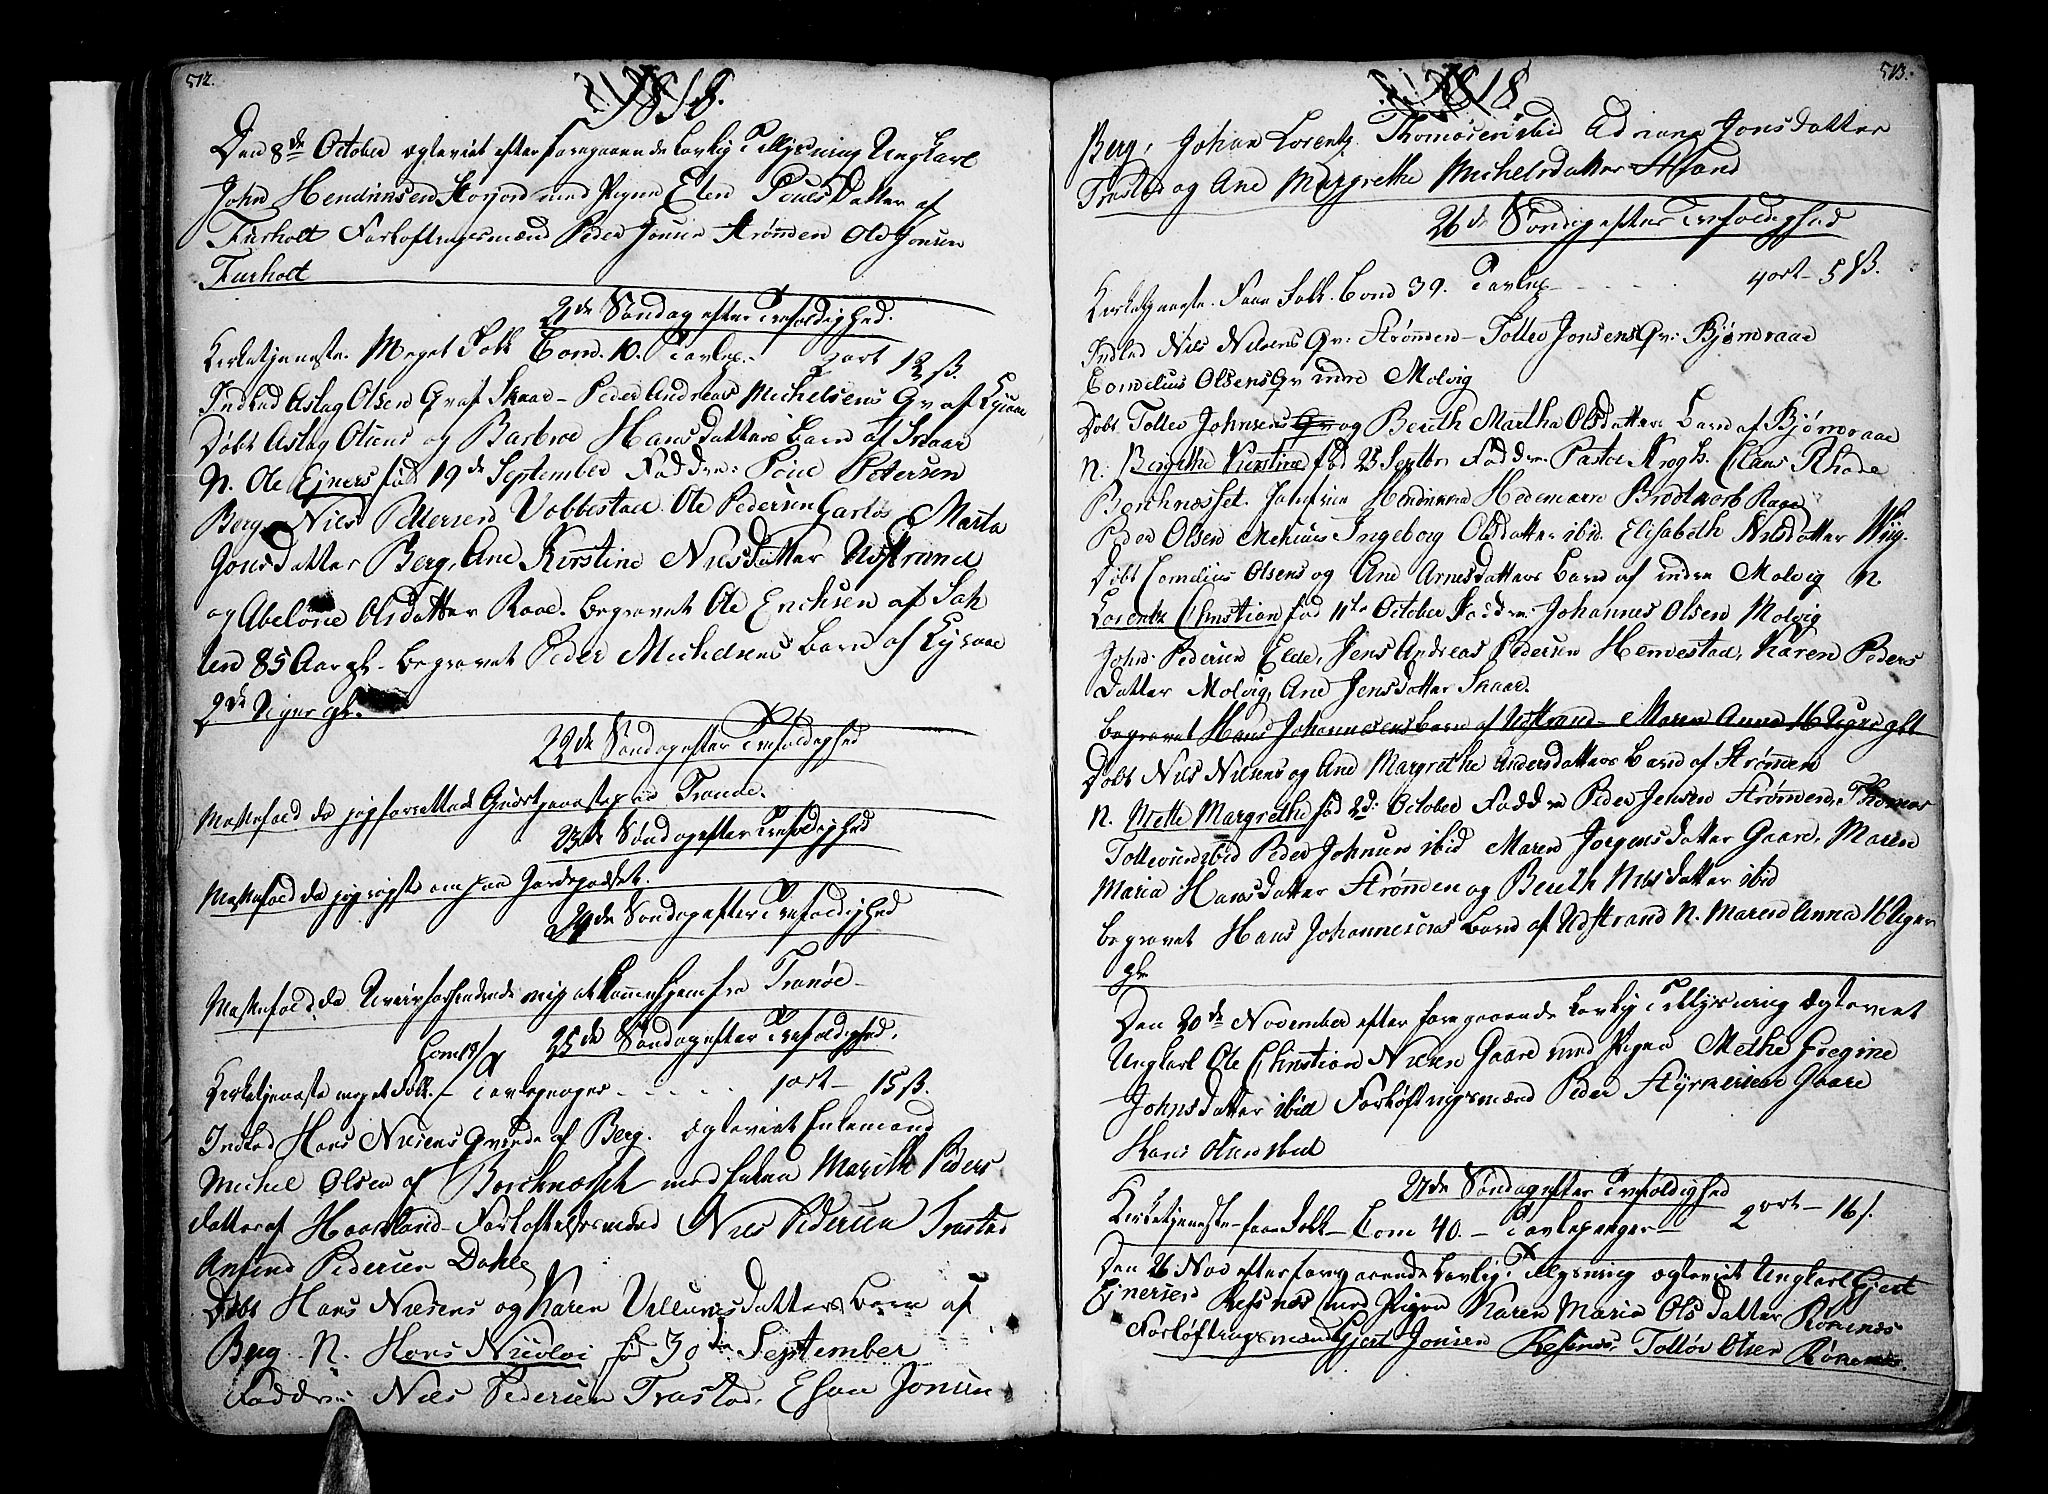 512.
1818.
Den 8de October ægteviet efter foregaaende lovlig Tillysning Ungkarl
John Hendriksen Storjord med Pigen Elen Pouels Datter af
Furholt Forloftningsmænd Peder Jonsen Strømen Ole Jonsen
Furholt
21de Søndag efter Trefoldighed.
Kirketjeneste. Meget Folk Com. 10. Tavlep. 2 ort 12 ß.
Indled Aslag Olsens Qv af Skaar - Peder Andreas Michelsens Qv af
Døbt Aslag Olsens og Barbroe Hans datters Barn af Skaar
N. Ole Ejners fød 19de September Faddre: Poue Petersen
Berg Niels Pettersen Vobbestad Ole Pedersen Marta
Jonsdatter Berg, Ane Kirstine Nielsdatter Udstrand
og Abelone Olsdatter Raae. begravet Ole Erichsen af
len 85 Aar gl. begravet Peder Michelsens Barn af
2de Uger gl.
22de Søndag efter Trefoldighed
Messefald da jeg forrettede Gudstjeneste paa Tranøe.
23de Søndag efter Trefoldighed
Messefald da jeg
24de Søndag efter Trefoldighed
Messefald da Uveir forhindrede mig at komme hjem fra Tranøe
25de Søndag efter Trefoldighed.
Kirketjeneste meget Folk. Com 19 Tavlepenger 1 ort - 15 ß.
Indled Hans Nielsens Qvinde af Berg. ægteviet Enkemand
Michel Olsen af Borchnæsset med Enken Marith Peders
datter af Haarland Forloftelsesmænd Niels Pedersen Trastad
Amund Pedersen Dahle
Døbt Hans Nielsens og Karen Villumsdatters Barn af
Berg N. Hans Nicolai fød 30de September
Faddre: Niels Pedersen Trastad, Esau Jonsen
513.
1818
Berg, Johan Lorentz Thomesen ibid Adriana Jonsdatter
Trastad og Ane Margrethe Michelsdatter
26de Søndag efter Trefoldighed
Kirketjeneste. Faae Folk. Comd 39. Tavlep 4 ort - 5 ß.
Indled Niels Nilsens Qv: Strømen - Tollev Jonsens Qv: Bjørnraae
Cornelius Olsens Qv indre Molvig
Døbt Tollev Johnsens Qv og Bereth Martha Olsdatters Barn af Bjørnraae
N. Bergithe Kirstine fød 23 Septbr Faddre Pastor Krogh. Claus Rhode
Borchnæsset. Jomfrue Hendrikke Hedemarn Brodtkorb Raae
Peder Olsen Ingeborg Olsdatter ibid. Elisabeth Nilsdatter Wiig.
Døbt Cornelius Olsens og Ane Arnesdatters Barn af indre Molvig N.
Lorentz Christian fød 11te October Faddre: Johannes Olsen Molvig
John Pedersen Elde, Jens Andreas Pedersen Hemmestad, Karen Peders
datter Molvig, Ane Jensdatter Skaar.
begravet Hans Johannesens Barn af Udstrand Maren Anna 16 Uger glt
Døbt Niels Nilsens og Ane Margrethe Andersdatters Barn af Strømen
N. Mette Margrethe fød 2d: October Faddre Peder Jensen Strømen, Thomas
Tollevsen ibid Peder Johnsen ibid Maren Jorgensdatter Gaare, Maren
Maria Hansdatter Strømen og Bereth Nilsdatter ibid
begravet Hans Johannesens Barn af Udstrand N. Maren Anna 16 Uger
gl.
Den 20de November efter foregaaende lovlig Tillysning ægteviet
Ungkarl Ole Christian Nielsen Gaare med Pigen Methe Fregine
Johnsdatter ibid Forløftningsmænd Peder Styrkersen Gaare
Hans Olsen ibid
27de Søndag efter Trefoldighed
Kirketjeneste - faae Folk - Com 40. - Tavlepenger - 2 ort - 16 ß.
Den 26 Nov efter foregaaende lovlig Tillysning ægteviet Ungkarl Gjert
Ejnersen Refsnæs med Pigen Karen Maria Olsdatter Rødnæs
Forløftningsmænd Gjert Jonsen Refsnæs. Tolløv Olsen